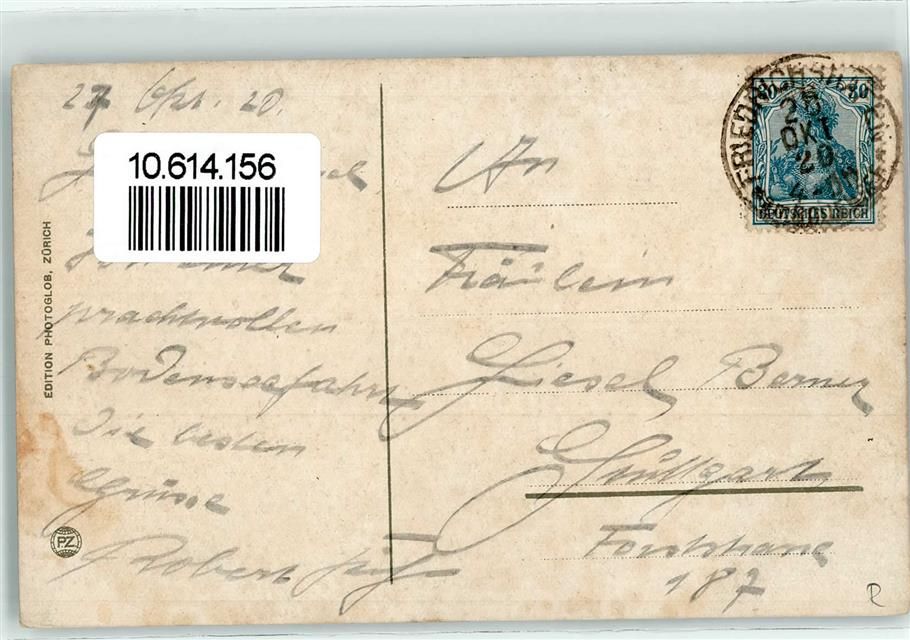 27 Okt. 20.
10.614.156
prachtvollen
Bodenseefahrt
die besten
Grüsse
Robert
EDITION PHOTOGLOB, ZÜRICH
PZ
An
Fräulein
Liesel Berner
Stuttgart
Forststrasse
187
FRIEDRICHSHAFEN
OKT
20
DEUTSCHES REICH
R